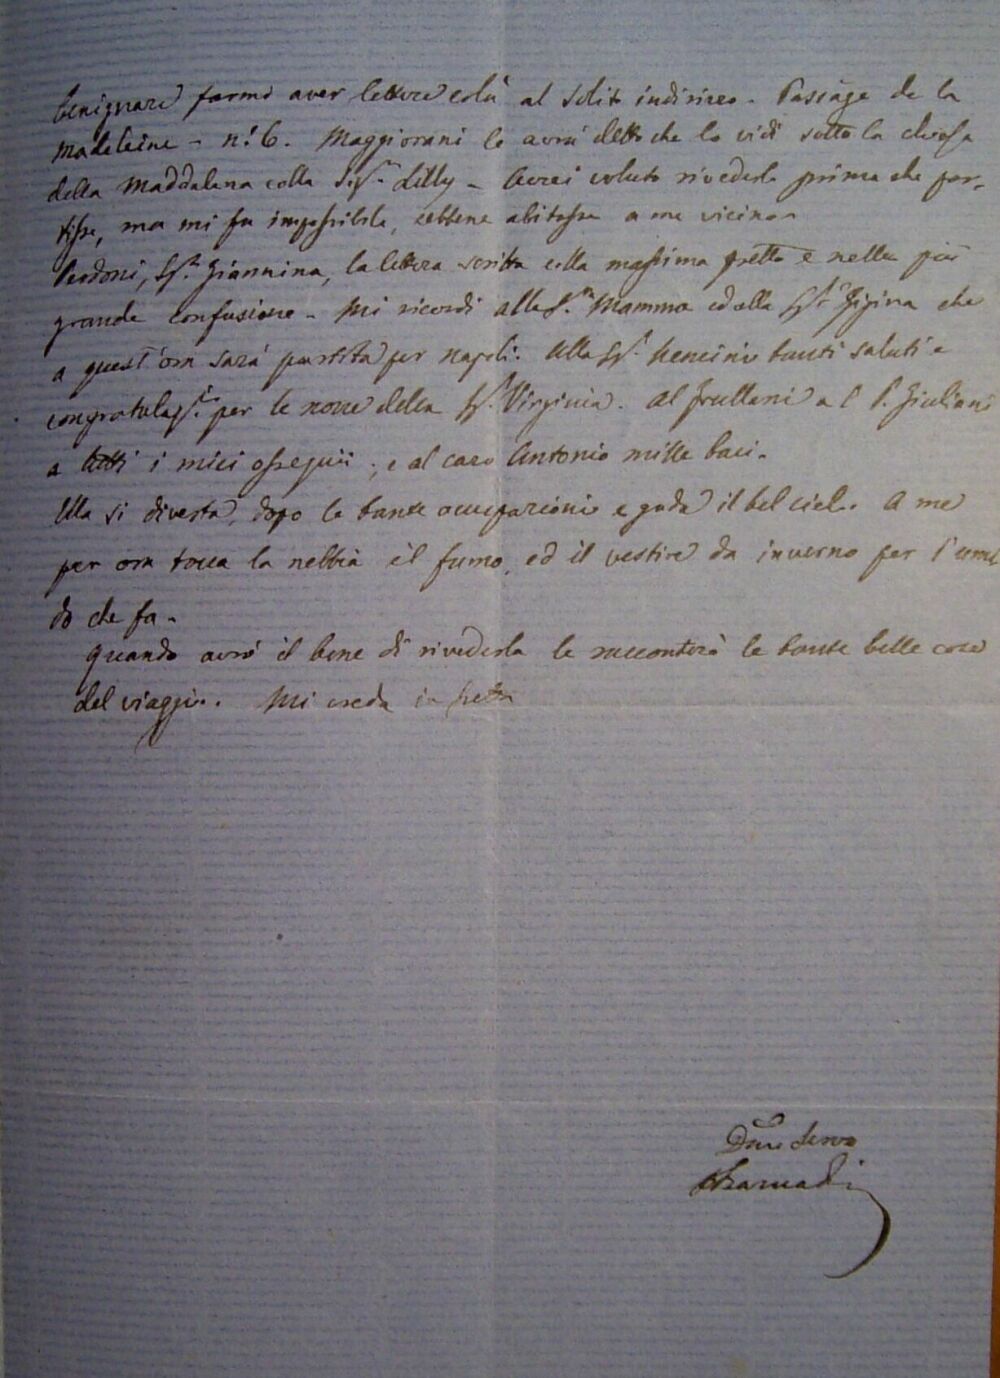 benignare farmi aver lettere colà al solito indirizzo. Passage de la
Madeleine - n.º 6. Maggiorani le avrà detto che lo vidi sotto la chiesa
della Maddalena colla Sig.ra Lilly - Avrei voluto rivederla prima che par-
tisse, ma mi fu impossibile, sebbene abitasse a me vicino.
Perdoni, Sg.ra Giannina, la lettera scritta colla massima fretta e nella più
grande confusione - Mi ricordi alla S.ra Mamma ed alla Sg.ra Gigina che
a quest'ora sarà partita per Napoli. Alla Sg.ra tanti saluti e
congratulaz.i per le nozze della Sg.ra Virginia. Al Frullani a l P. Giuliani
a tutti i miei ossequii, e al caro Antonio mille baci.
Ella si diverta, dopo le tante occupazioni e goda il bel cielo. A me
per ora tocca la nebbia il fumo, ed il vestire da inverno per l'umi
do che fa.
Quando avrò il bene di rivederla le racconterò le tante belle cose
del viaggio. Mi creda in fretta
Servo